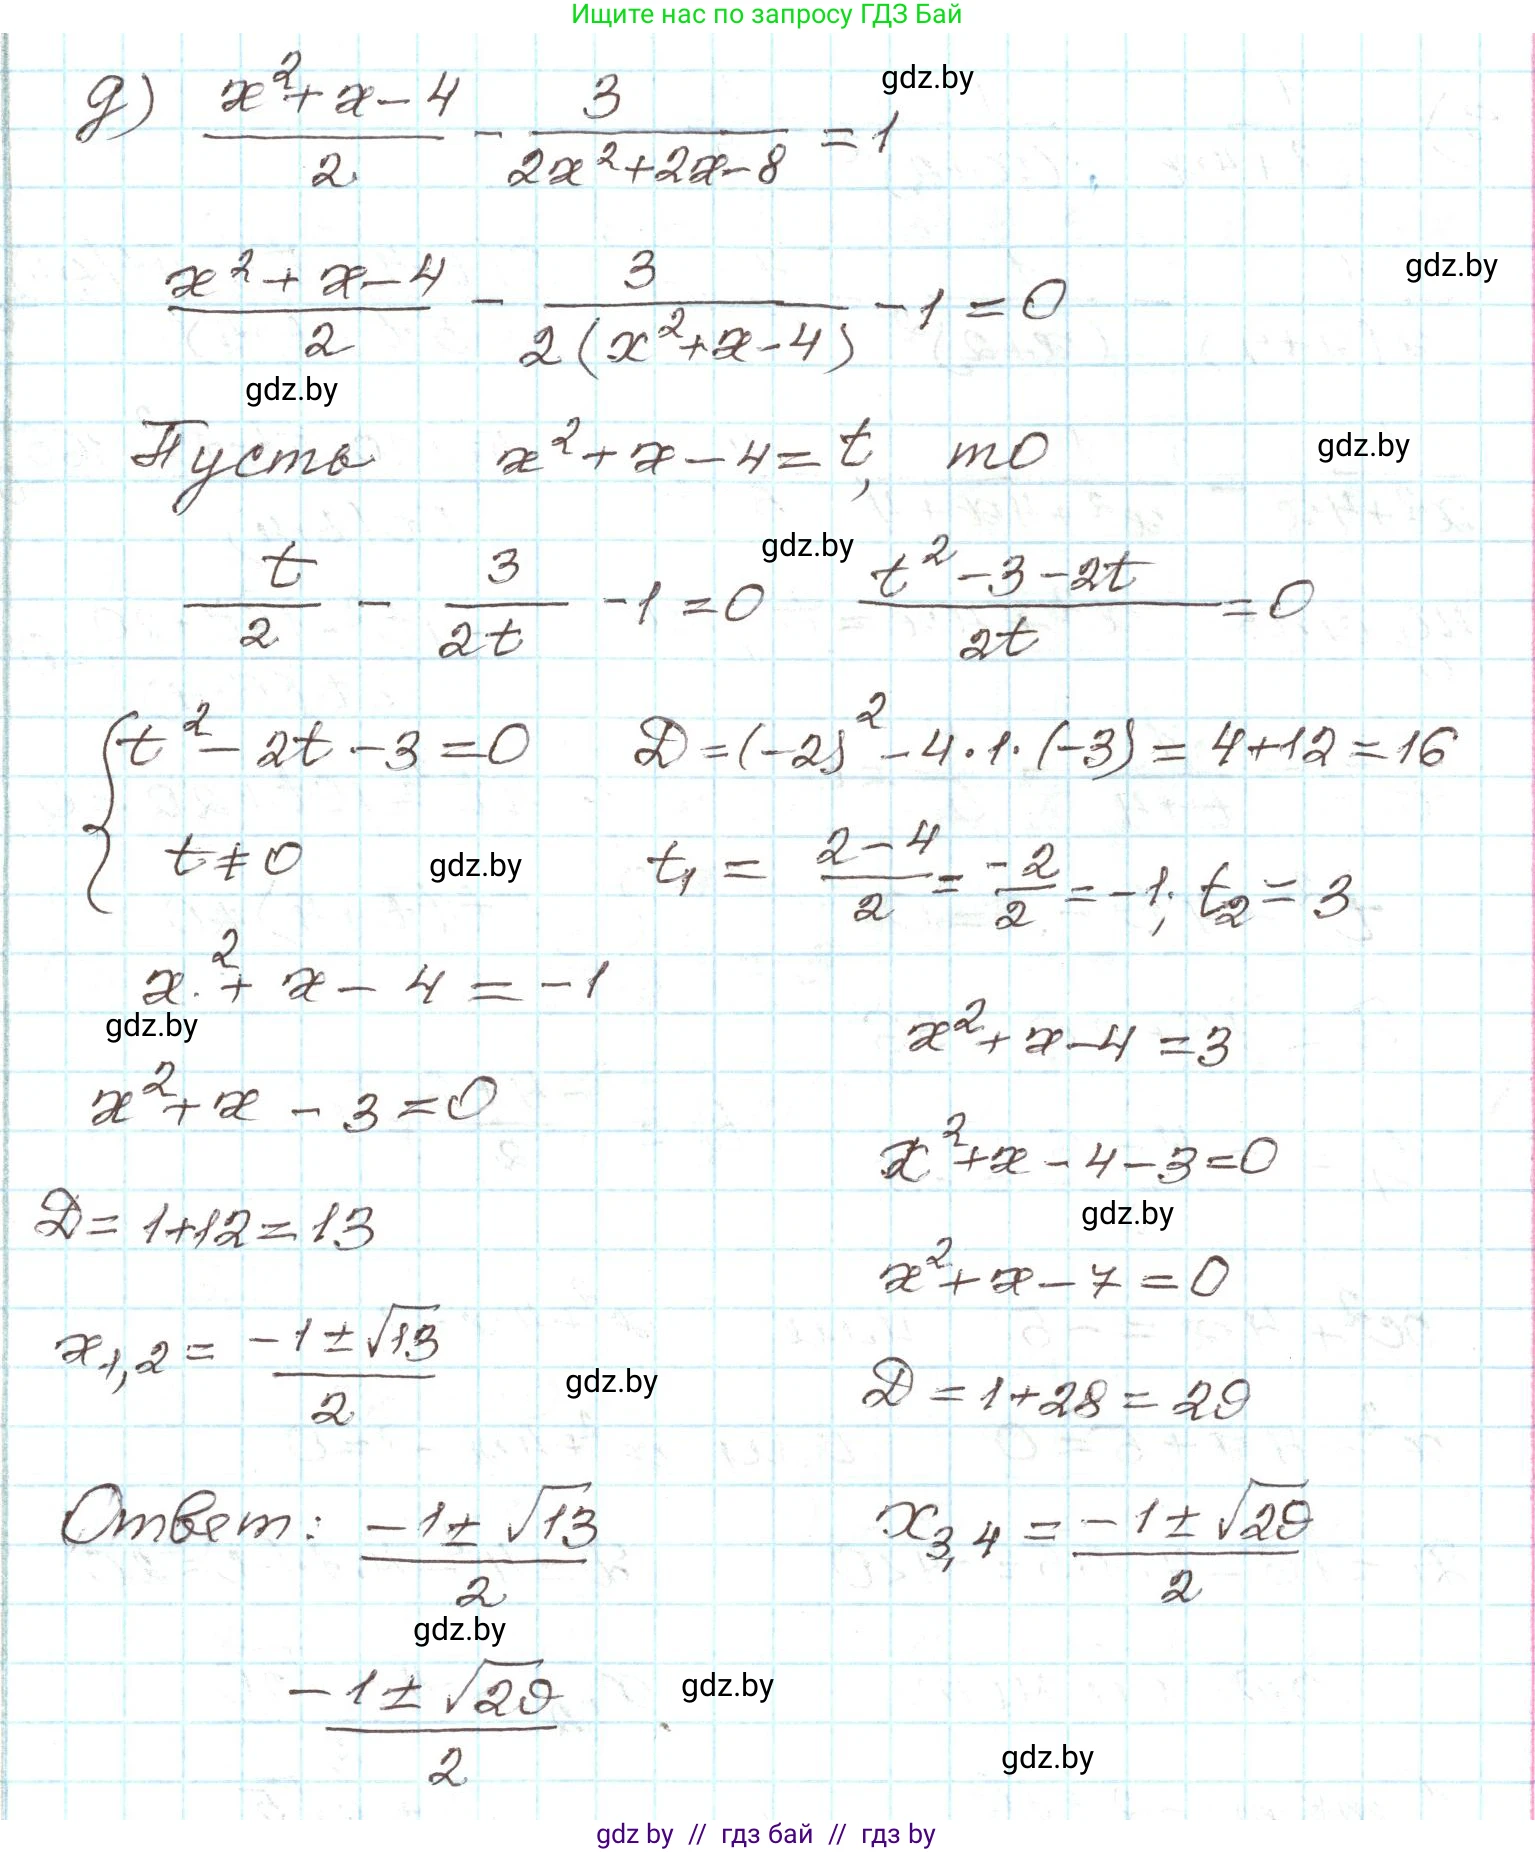 Ищите нас по запросу ГДЗ Бай
д) (x²+x-4)/2 - 3/(2x²+2x-8) = 1 gdz.by
(x²+x-4)/2 - 3/(2(x²+x-4)) - 1 = 0 gdz.by
gdz.by
Пусть x²+x-4=t, то gdz.by
t/2 - 3/(2t) - 1 = 0 gdz.by (t²-3-2t)/(2t) = 0
{ t²-2t-3=0 D=(-2)²-4·1·(-3)=4+12=16
t≠0 gdz.by t₁ = (2-4)/2 = -2/2 = -1; t₂=3
x²+x-4=-1
gdz.by
x²+x-4=3
x²+x-3=0
x²+x-4-3=0
gdz.by
D=1+12=13
x²+x-7=0
x₁,₂ = (-1±√13)/2
gdz.by
D=1+28=29
Ответ: (-1±√13)/2
x₃,₄ = (-1±√29)/2
gdz.by
(-1±√29)/2 gdz.by
gdz.by
gdz by // гдз бай // гдз by